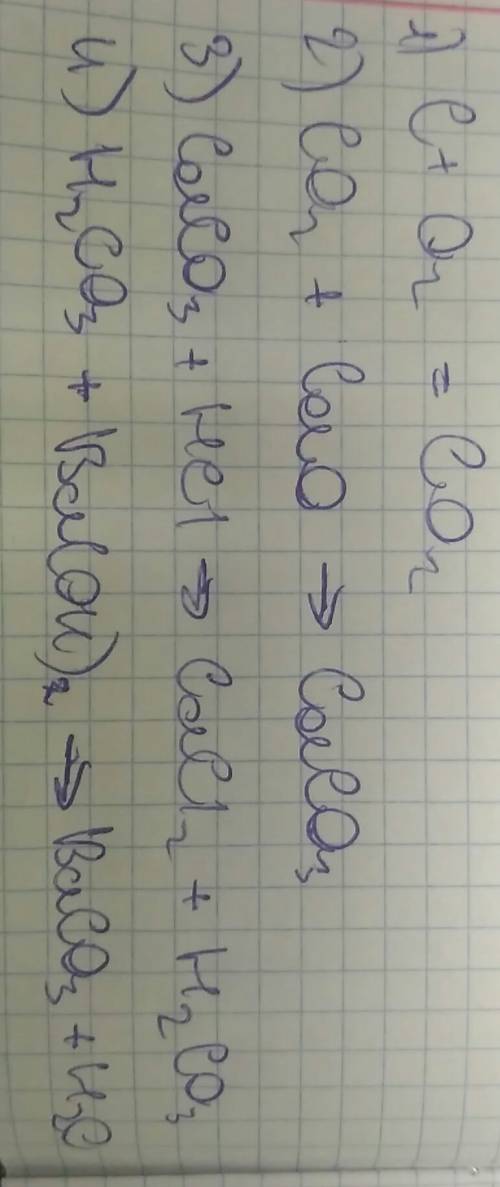 1) C + O₂ = CO₂
2) CO₂ + CaO → CaCO₃
3) CaCO₃ + HCl → CaCl₂ + H₂CO₃
4) H₂CO₃ + Ba(OH)₂ → BaCO₃ + H₂O